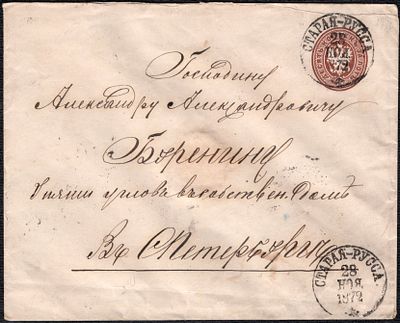 СТАРАЯ-РУССА
28
НОЯ.
1872
Господину
Александру Александровичу
Боренину
У пяти угловъ въ собствен. Домѣ
Въ С Петербургъ
СТАРАЯ-РУССА
28
НОЯ
1872